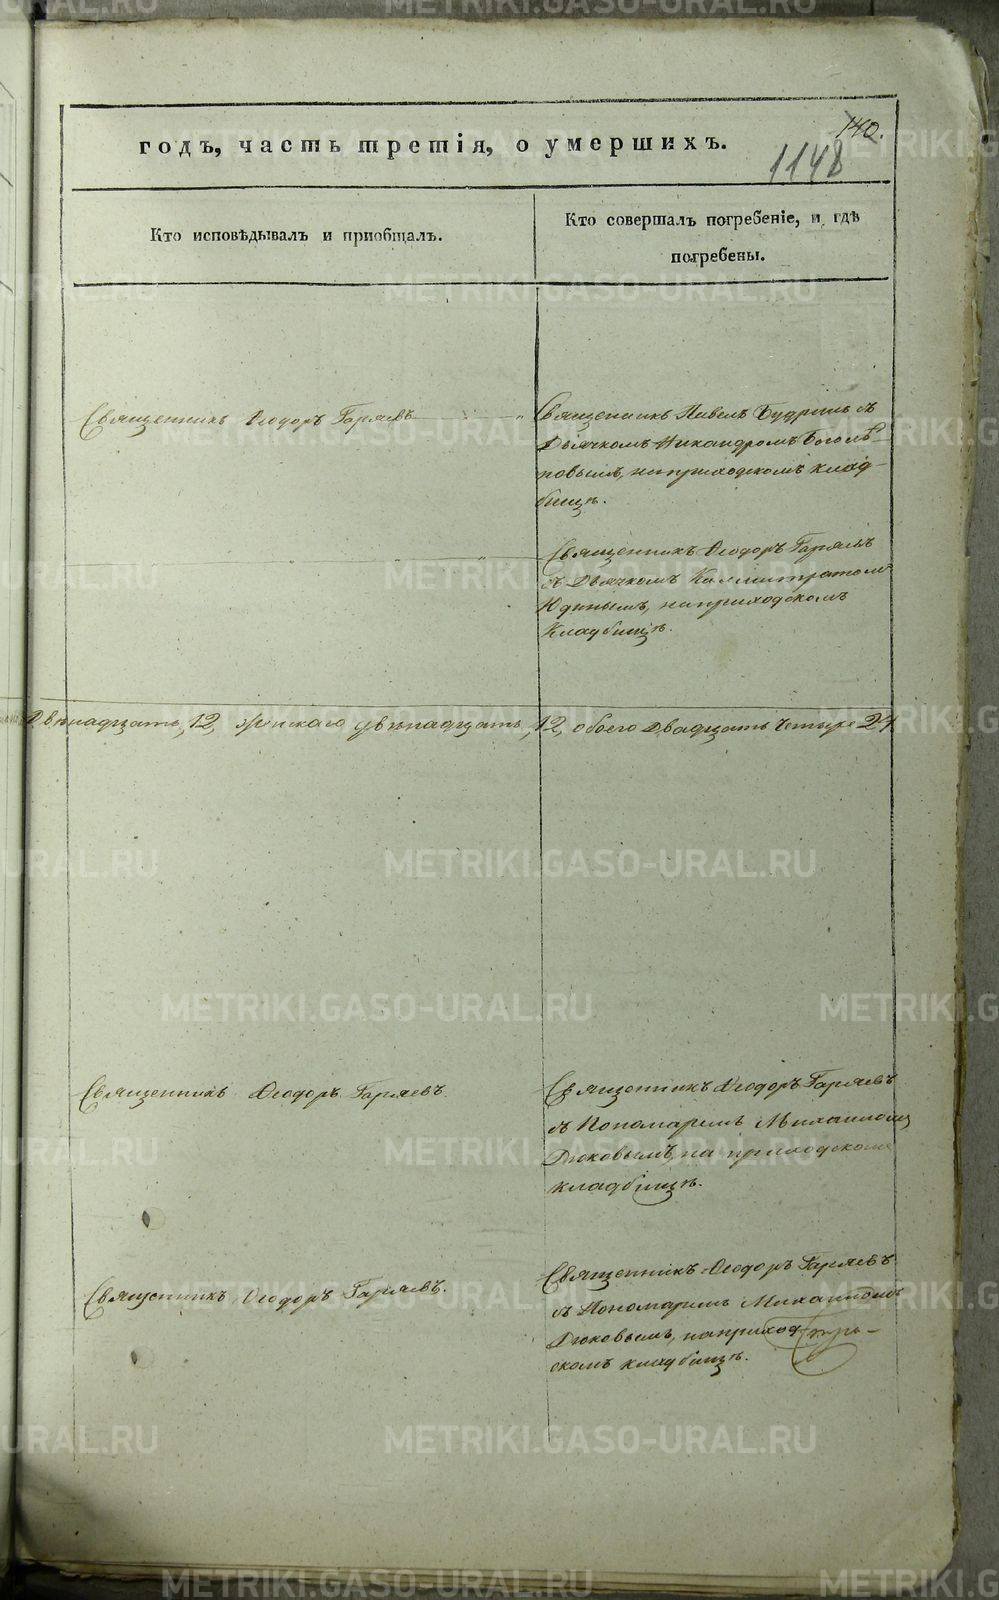 140.
1148
годъ, часть третія, о умершихъ.
Кто исповѣдывалъ и пріобщалъ.
Кто совершалъ погребеніе, и гдѣ
погребены.
Священникъ Ѳеодоръ Гаряевъ
Священникъ Павелъ Будринъ съ
Дьячкомъ Никандромъ
на приходскомъ клад-
бищѣ.
Священникъ Ѳеодоръ Гаряевъ
съ Дьячкомъ Каллистратомъ
Юдинымъ, на приходскомъ
Кладбищѣ.
Двѣнадцать, 12, женскаго двѣнадцать, 12, обоего Двадцать четыре 24
Священникъ Ѳеодоръ Гаряевъ
Священникъ Ѳеодоръ Гаряевъ
съ Пономаремъ Михаиломъ
Дюковымъ, на приходскомъ
кладбищѣ.
Священникъ Ѳеодоръ Гаряевъ.
Священникъ Ѳеодоръ Гаряевъ
съ Пономаремъ Михаиломъ
Дюковымъ, на приход-
скомъ кладбищѣ.
METRIKI.GASO-URAL.RU